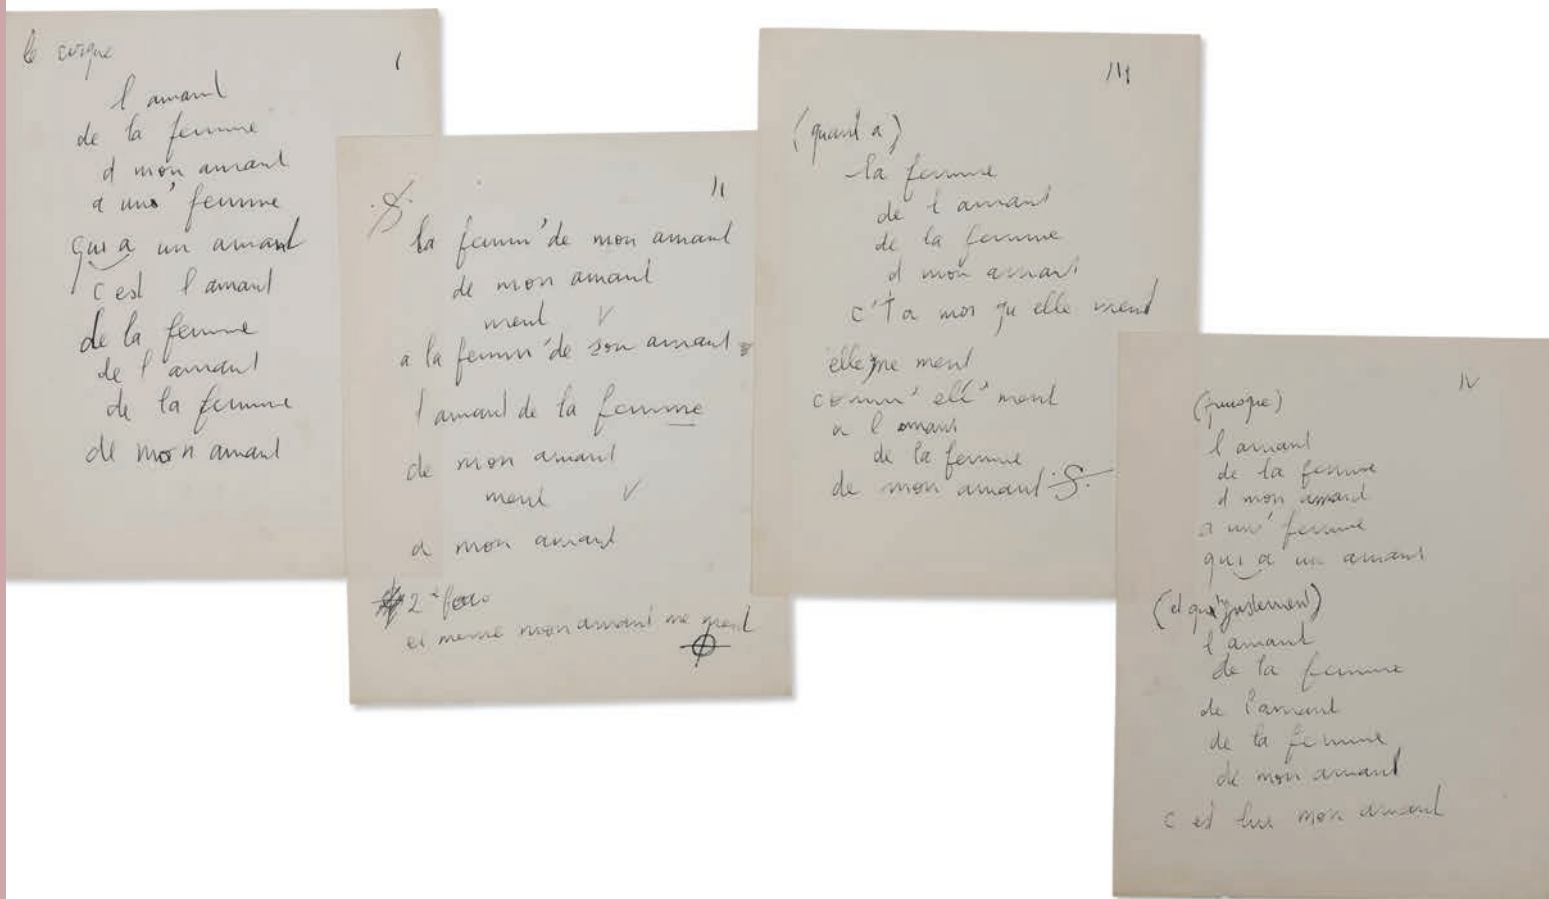 le cirque
I
l amant
de la femme
d mon amant
a un' femme
qui a un amant
c est l amant
de la femme
de l'amant
de la femme
de mon amant
II
la femm' de mon amant
de mon amant
ment V
a la femm' de son amant
l amant de la femme
de mon amant
ment V
a mon amant
2e fois
et meme mon amant me ment
III
(quant a)
la femme
de l amant
de la femme
d mon amant
c't a moi qu elle ment
elle me ment
comm' ell' ment
a l amant
de la femme
de mon amant
IV
(puisque)
l amant
de la femme
d mon amant
a un' femme
qui a un amant
(et que justement)
l amant
de la femme
de l'amant
de la femme
de mon amant
c est lui mon amant